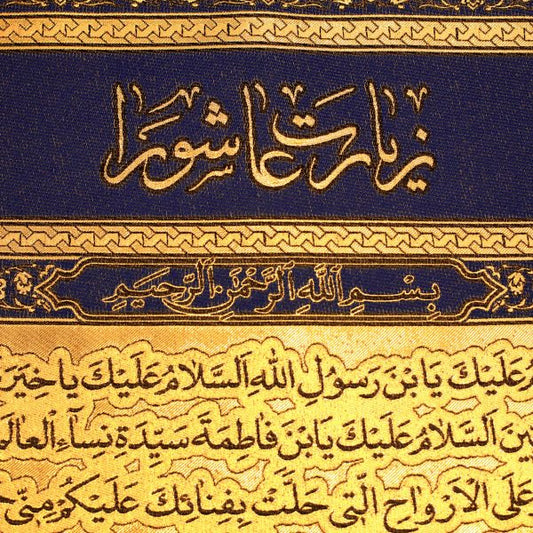 زیارت عاشورا
بِسْمِ اللَّهِ الرَّحْمَنِ الرَّحِيمِ
عَلَيْكَ يَا بْنَ رَسُولِ اللهِ اَلسَّلامُ عَلَيْكَ يا خِيَرَ
اَلسَّلامُ عَلَيْكَ يَابْنَ فاطِمَةَ سَيِّدَةِ نِساءِ العالَم
عَلَى الْاَرْواحِ الَّتى حَلَّتْ بِفِنائِكَ عَلَيْكُمْ مِنّى